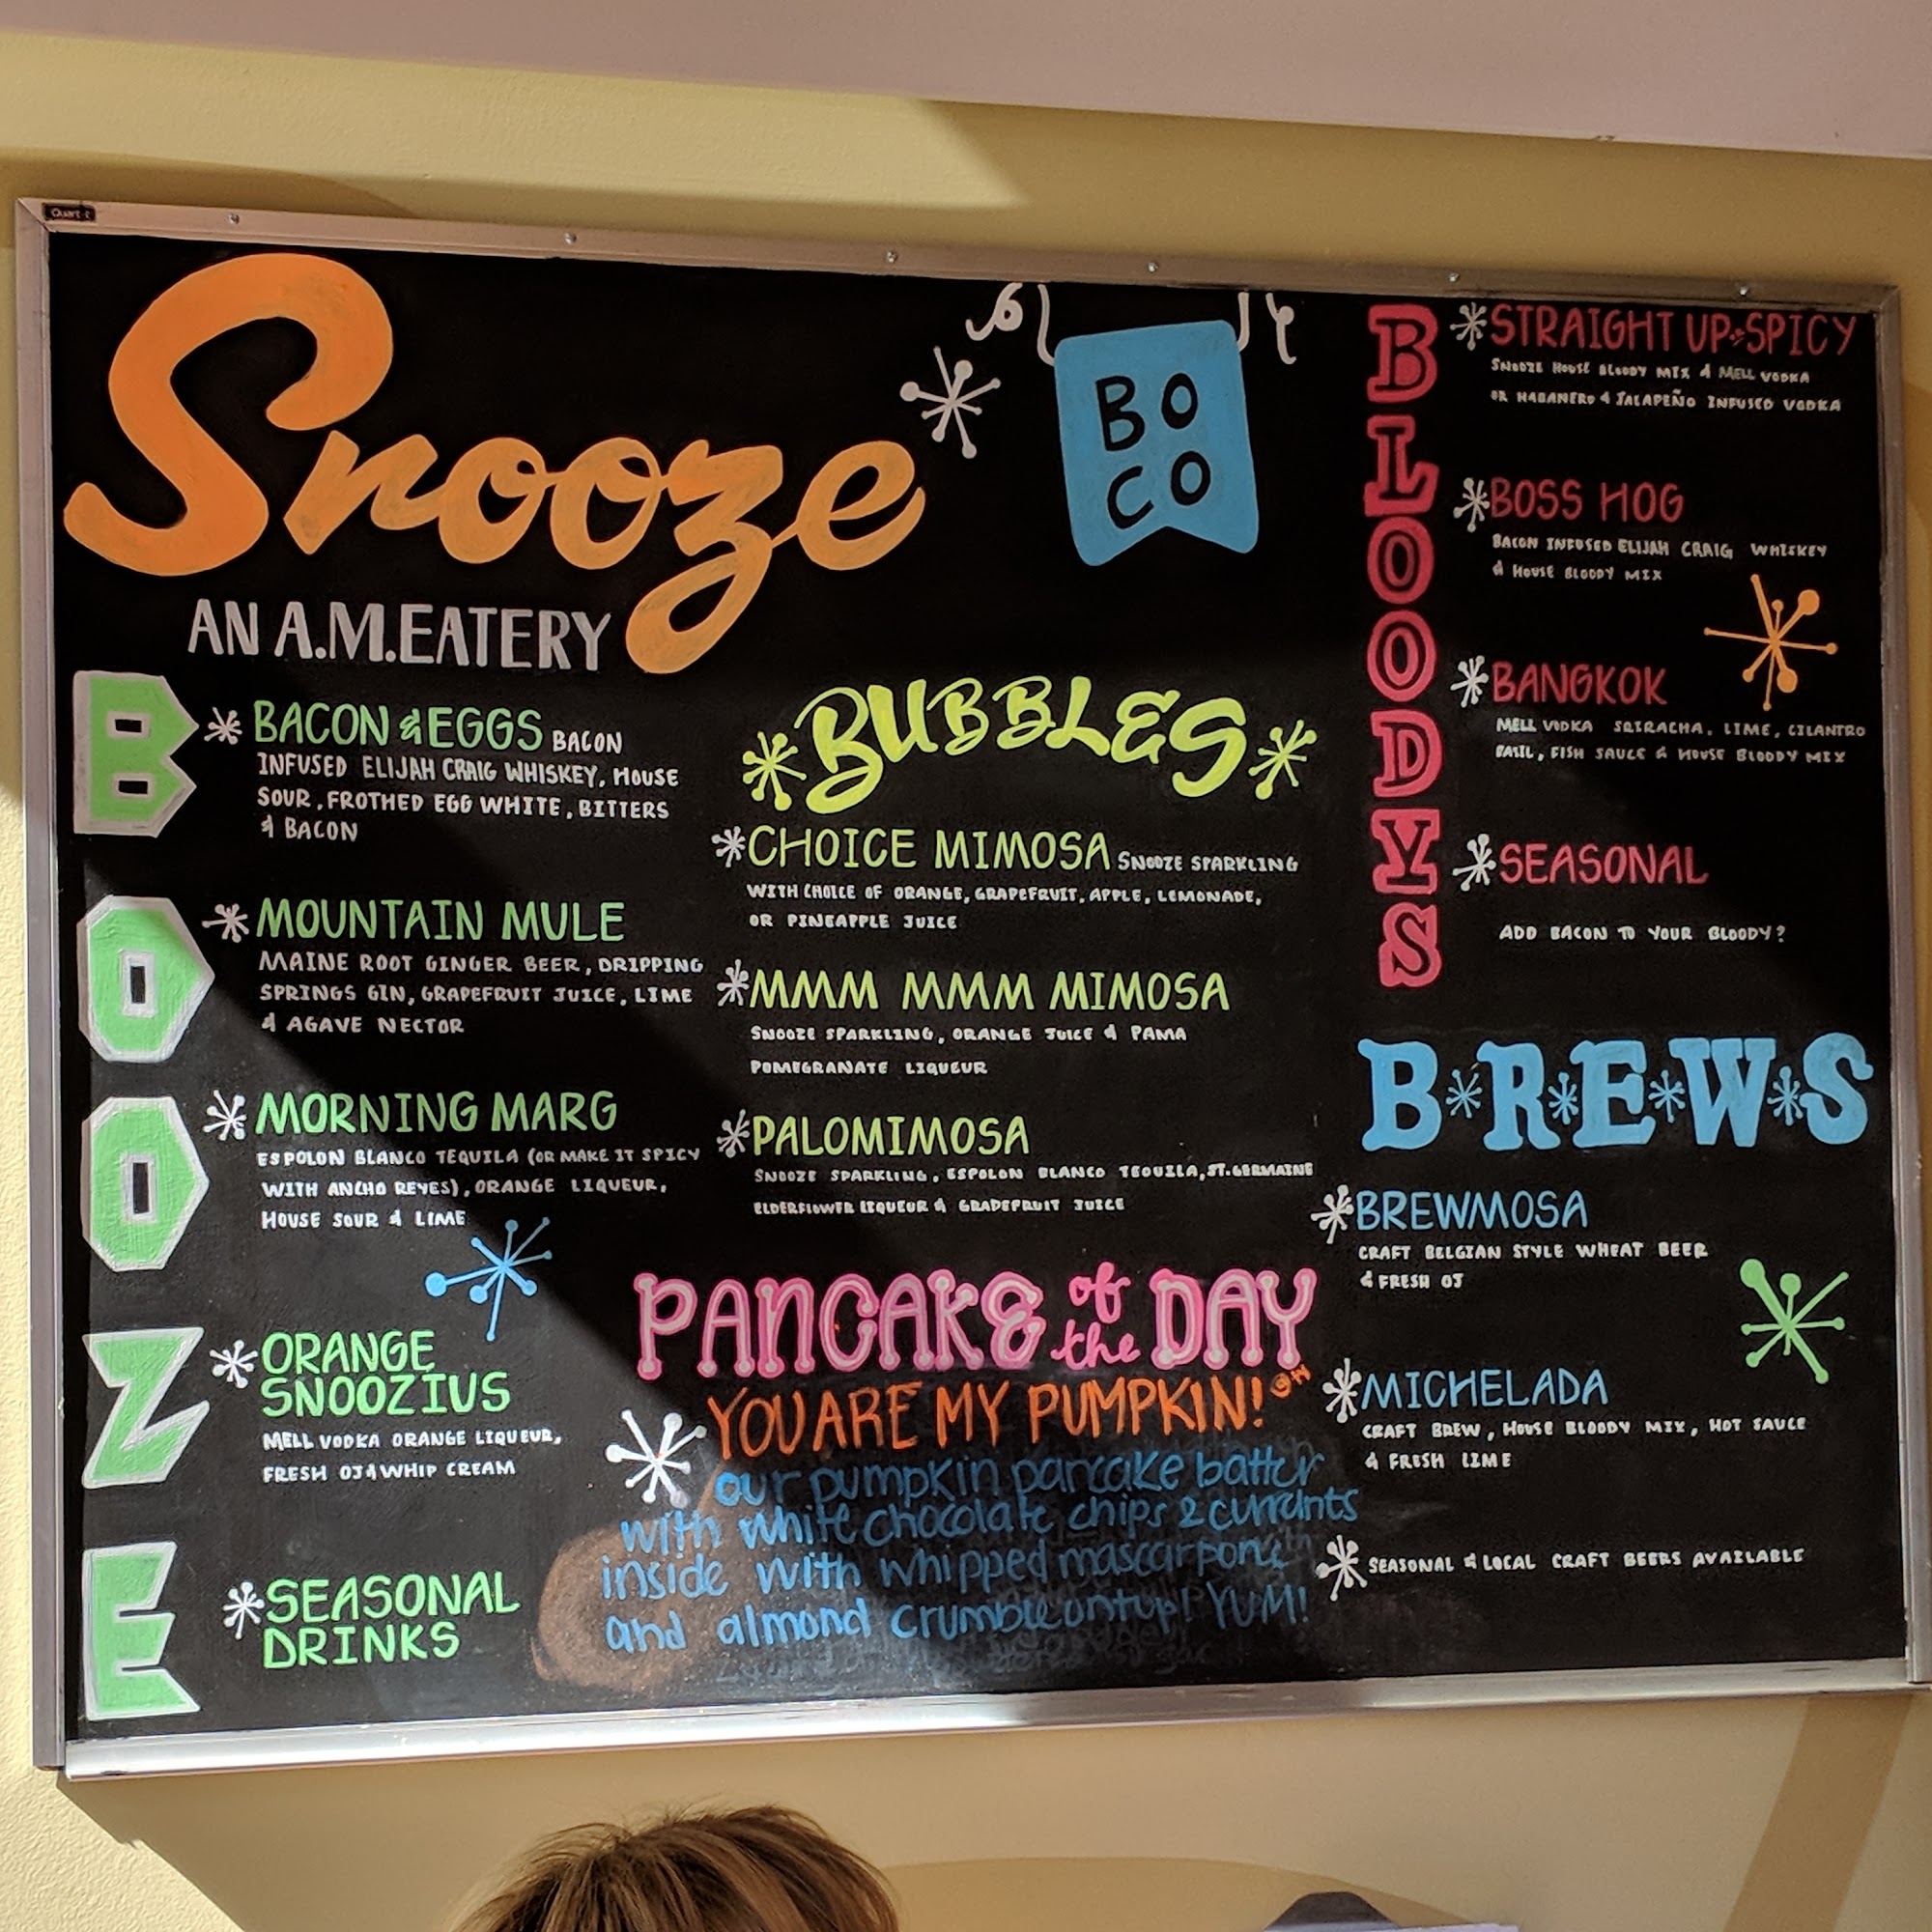 Snooze
AN A.M. EATERY
BO
CO
BOOZE
BACON & EGGS BACON
INFUSED ELIJAH CRAIG WHISKEY, HOUSE
SOUR, FROTHED EGG WHITE, BITTERS
& BACON
MOUNTAIN MULE
MAINE ROOT GINGER BEER, DRIPPING
SPRINGS GIN, GRAPEFRUIT JUICE, LIME
& AGAVE NECTOR
MORNING MARG
ESPOLON BLANCO TEQUILA (OR MAKE IT SPICY
WITH ANCHO REYES), ORANGE LIQUEUR,
HOUSE SOUR & LIME
ORANGE
SNOOZIUS
MELL VODKA ORANGE LIQUEUR,
FRESH OJ & WHIP CREAM
SEASONAL
DRINKS
BUBBLES
CHOICE MIMOSA SNOOZE SPARKLING
WITH CHOICE OF ORANGE, GRAPEFRUIT, APPLE, LEMONADE,
OR PINEAPPLE JUICE
MMM MMM MIMOSA
SNOOZE SPARKLING, ORANGE JUICE & PAMA
POMEGRANATE LIQUEUR
PALOMIMOSA
SNOOZE SPARKLING, ESPOLON BLANCO TEQUILA, ST. GERMAINE
ELDERFLOWER LIQUEUR & GRAPEFRUIT JUICE
PANCAKE of the DAY
YOU ARE MY PUMPKIN!
our pumpkin pancake batter
with white chocolate chips & currants
inside with whipped mascarpone
and almond crumble ontup! YUM!
BLOODYS
STRAIGHT UP or SPICY
SNOOZE HOUSE BLOODY MIX & MELL VODKA
OR HABANERO & JALAPEÑO INFUSED VODKA
BOSS HOG
BACON INFUSED ELIJAH CRAIG WHISKEY
& HOUSE BLOODY MIX
BANGKOK
MELL VODKA SRIRACHA, LIME, CILANTRO
BASIL, FISH SAUCE & HOUSE BLOODY MIX
SEASONAL
ADD BACON TO YOUR BLOODY?
B*R*E*W*S
BREWMOSA
CRAFT BELGIAN STYLE WHEAT BEER
& FRESH OJ
MICHELADA
CRAFT BREW, HOUSE BLOODY MIX, HOT SAUCE
& FRESH LIME
SEASONAL & LOCAL CRAFT BEERS AVAILABLE